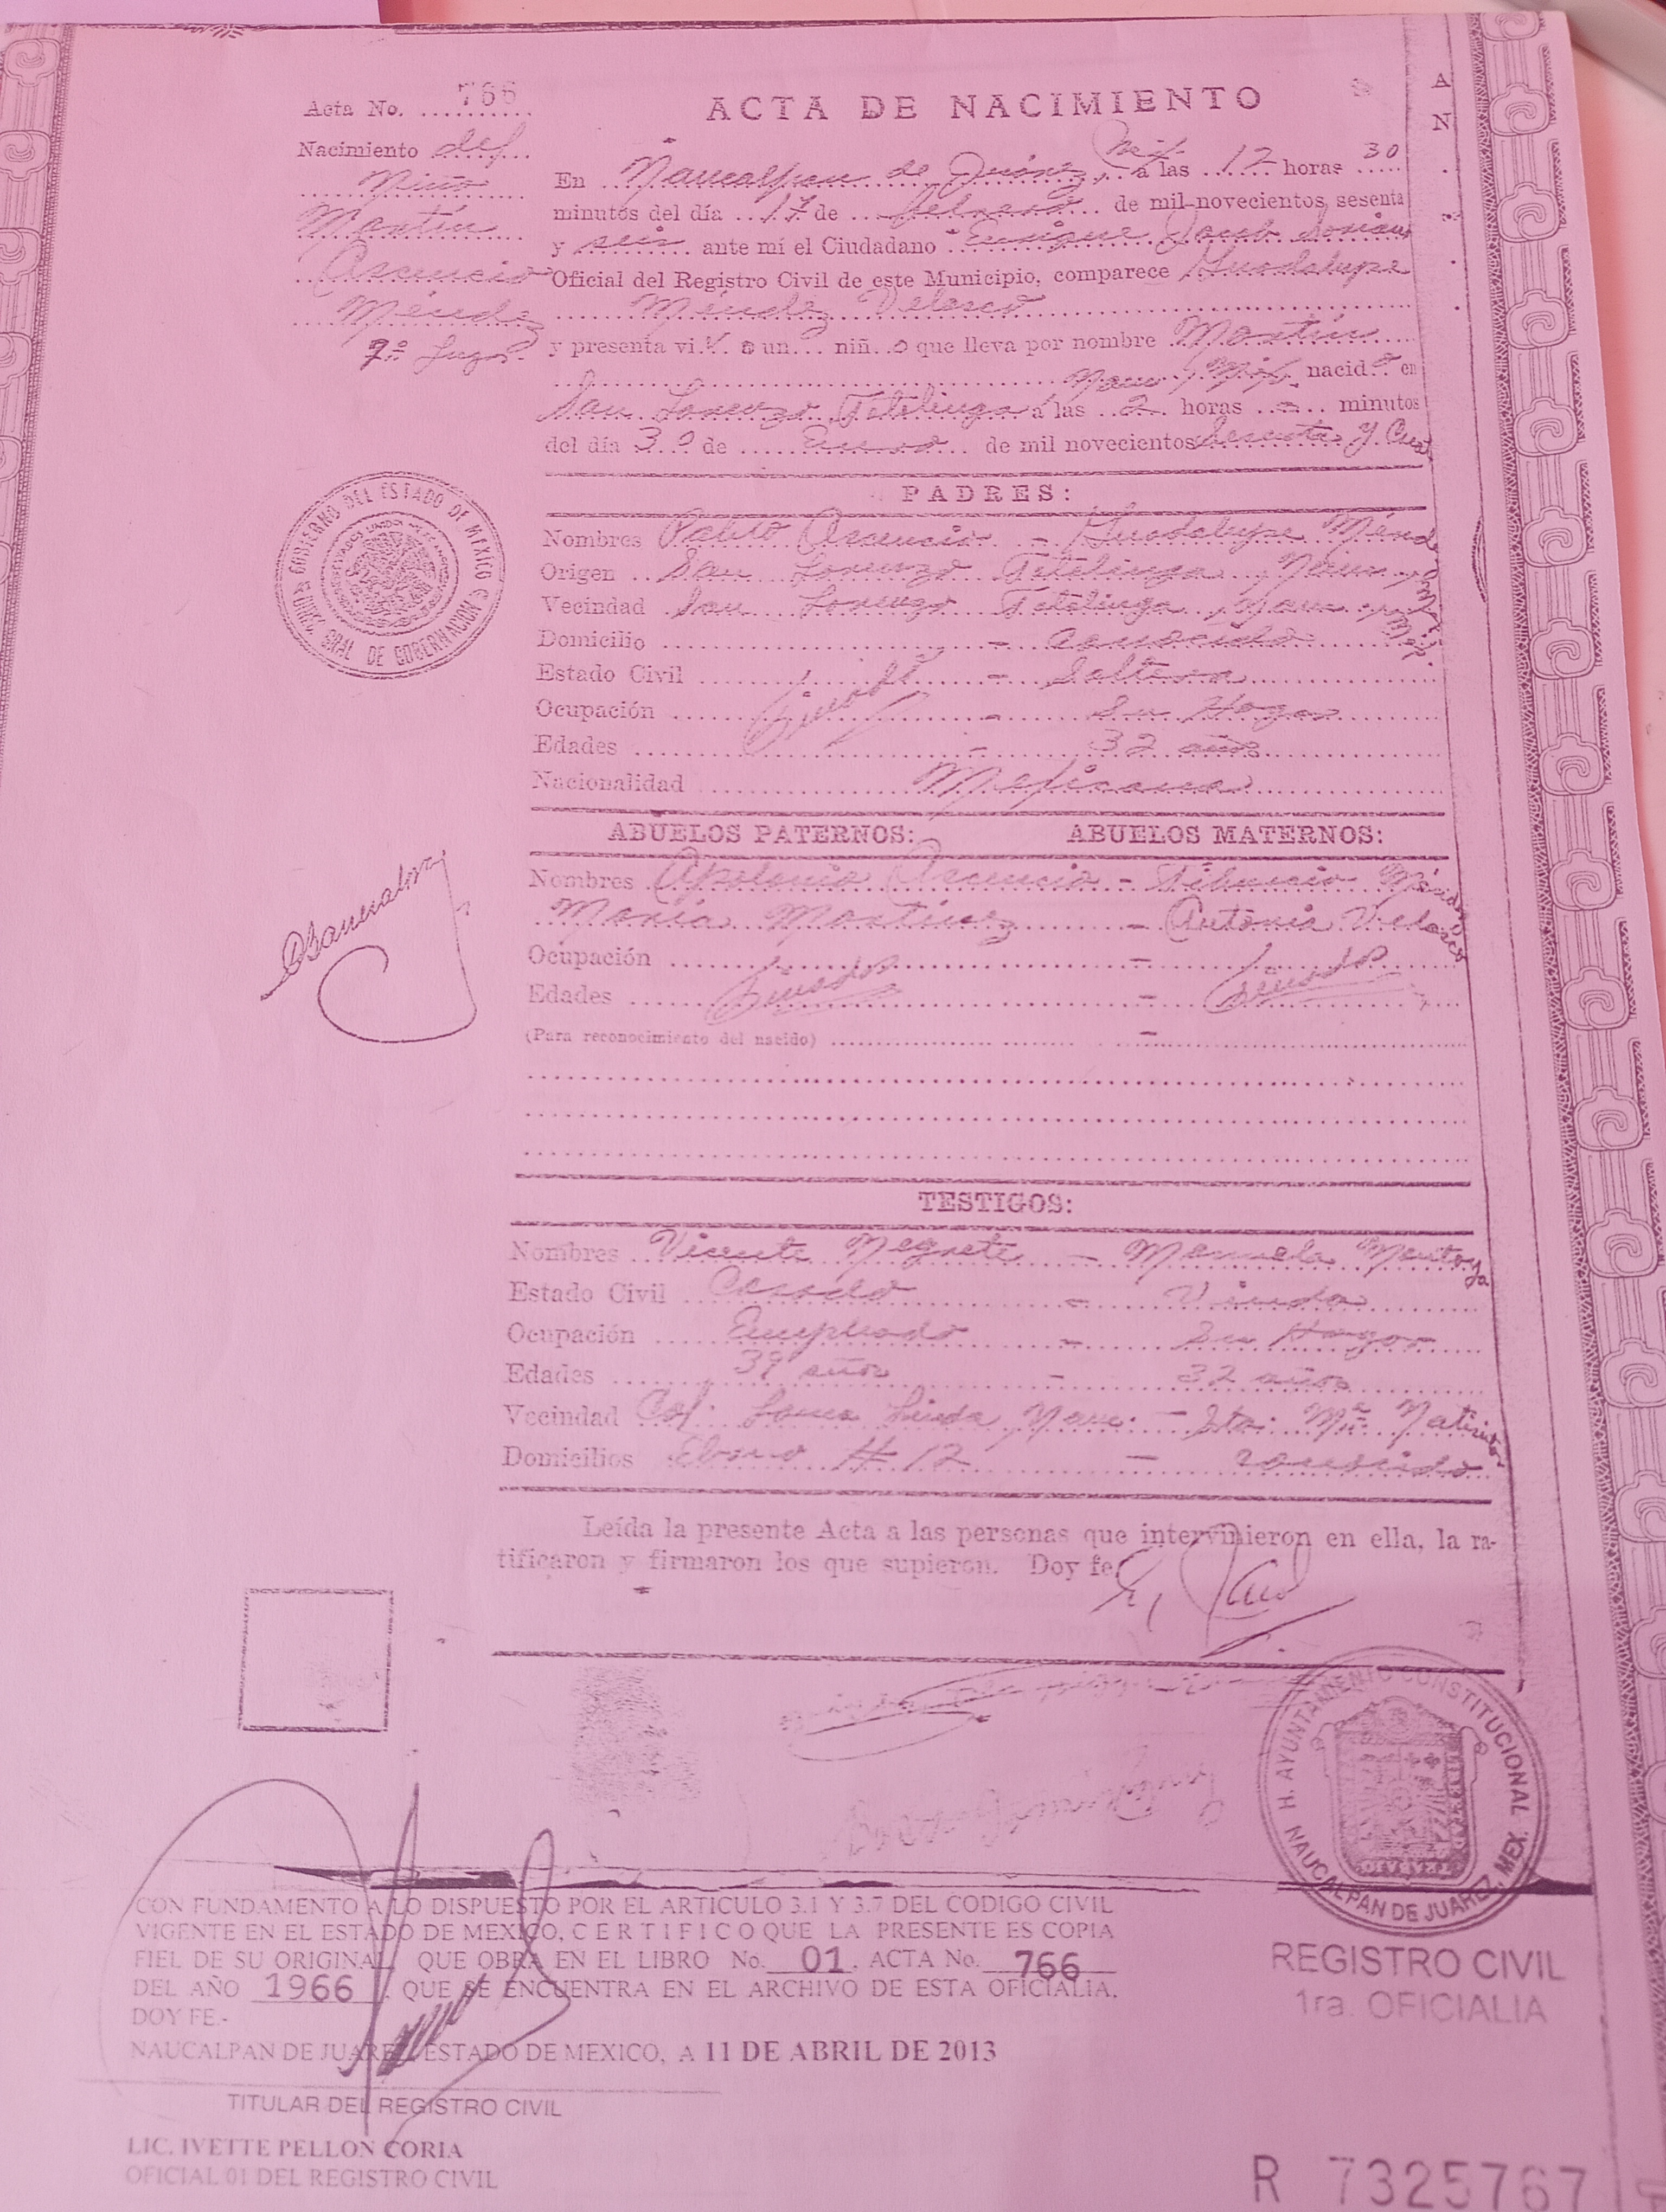 Acta No. 766
ACTA DE NACIMIENTO
A
N
Nacimiento del
Niño
Martín
Ascencio
Méndez
En Naucalpan de Juárez, Méx. a las 12 horas 30
minutos del día 17 de febrero de mil novecientos sesenta
y seis ante mí el Ciudadano Enrique Jacob Soriano
Oficial del Registro Civil de este Municipio, comparece Guadalupe
Méndez Velasco
y presenta vi.v.o un... niñ..o que lleva por nombre Martín
Nau, Méx. nacido en
San Lorenzo Totolinga a las 2 horas - minutos
del día 30 de Enero de mil novecientos sesenta y
PADRES:
Nombres Pablo Ascencio - Guadalupe Ménd
Origen San Lorenzo Totolinga, Nau
Vecindad San Lorenzo Totolinga, Nau
Domicilio - conocido
Estado Civil - Soltera
Ocupación - Su Hogar
Edades - 32 años
Nacionalidad Mexicana
GOBIERNO DEL ESTADO DE MEXICO
DIREC. GRAL. DE GOBERNACION
ESTADOS UNIDOS MEXICANOS
ABUELOS PATERNOS: ABUELOS MATERNOS:
Nombres Apolonio Ascencio - Tiburcio Méndez
María Martínez - Antonia Velasco
Ocupación -
Edades -
(Para reconocimiento del nacido) -
TESTIGOS:
Nombres Vicente Negrete - Manuela Montoya
Estado Civil Casado - Viuda
Ocupación Empleado - Su Hogar
Edades 39 años - 32 años
Vecindad Col. Loma Linda Nau. - Sta. Ma.
Domicilios Ebano # 12 - conocido
Leída la presente Acta a las personas que intervinieron en ella, la ra-
tificaron y firmaron los que supieron. Doy fe
H. AYUNTAMIENTO CONSTITUCIONAL
NAUCALPAN DE JUAREZ, MEX.
TRABAJO
CON FUNDAMENTO A LO DISPUESTO POR EL ARTICULO 3.1 Y 3.7 DEL CODIGO CIVIL
VIGENTE EN EL ESTADO DE MEXICO, C E R T I F I C O QUE LA PRESENTE ES COPIA
FIEL DE SU ORIGINAL QUE OBRA EN EL LIBRO No. 01. ACTA No. 766
DEL AÑO 1966, QUE SE ENCUENTRA EN EL ARCHIVO DE ESTA OFICIALIA.
DOY FE.-
NAUCALPAN DE JUAREZ ESTADO DE MEXICO, A 11 DE ABRIL DE 2013
REGISTRO CIVIL
1ra. OFICIALIA
TITULAR DEL REGISTRO CIVIL
LIC. IVETTE PELLON CORIA
OFICIAL 01 DEL REGISTRO CIVIL
R 7325767